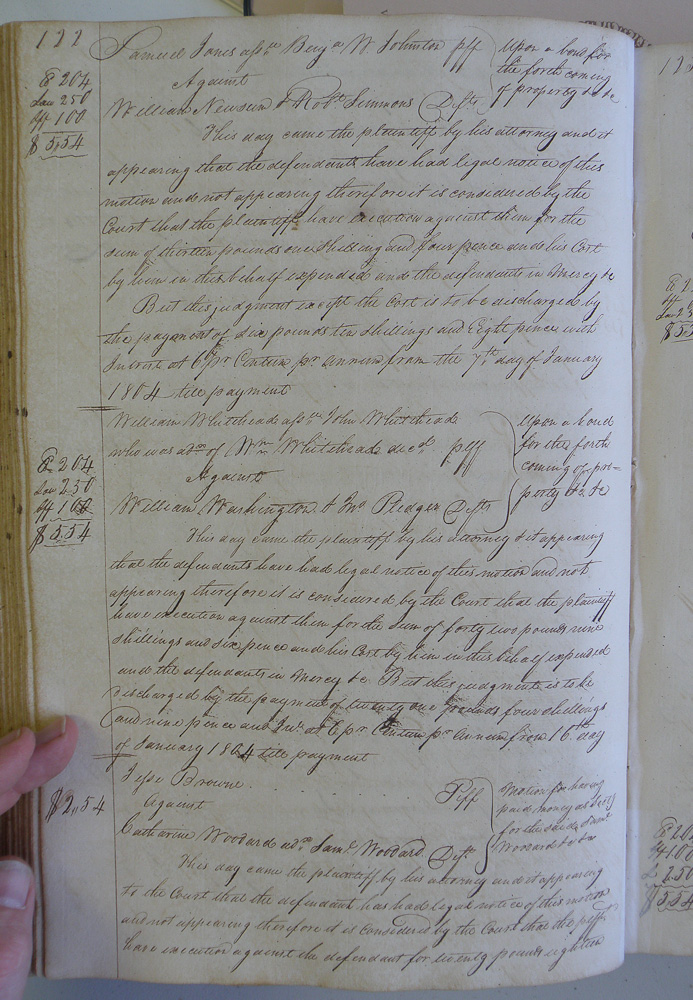 122
Samuel Jones assee Benja W. Johnston plf
Upon a bond for
the forth coming
of property &c &c
Against
William Newsum & Robt Simmons Defts
C 204
Law 250
Aff 100
$ 5,54
This day came the plaintiff by his attorney and it
appearing that the defendants have had legal notice of this
motion and not appearing therefore it is considered by the
Court that the plaintiff have execution against them for the
sum of thirteen pounds one shilling and four pence and his Cost
by him in this behalf expended and the defendants in Mercy &c
But this judgment except the Cost is to be discharged by
the payment of Six pounds ten shillings and Eight pence with
Interest at 6 pr Centum pr annum from the 7th day of January
1804 till payment
William Whitehead assee John Whitehead
who was adm of Wm Whitehead decd plf
Upon a bond
for the forth
coming of pro-
perty &c &c
Against
William Washington & Jno Pledger Defts
C 204
Law 250
Aff 100
$ 5.54
This day came the plaintiff by his attorney & it appearing
that the defendants have had legal notice of this motion and not
appearing therefore it is considered by the Court that the plaintiff
have execution against them for the sum of forty two pounds nine
shillings and six pence and his Cost by him in this behalf expended
and the defendants in Mercy &c. But this judgment is to be
discharged by the payment of twenty one pounds four shillings
and nine pence and Int. at 6 pr Centum pr annum from 16th day
of January 1804 till payment
Jesse Browne Plff
Motion for having
paid money as
for the said Saml
Woodard &c &c
Against
Catharine Woodard adx Saml Woodard Deft
$2,54
This day came the plaintiff by his attorney and it appearing
to the Court that the defendant has had legal notice of this motion
and not appearing therefore it is considered by the Court that the plff
have execution against the defendant for twenty pounds eighteen